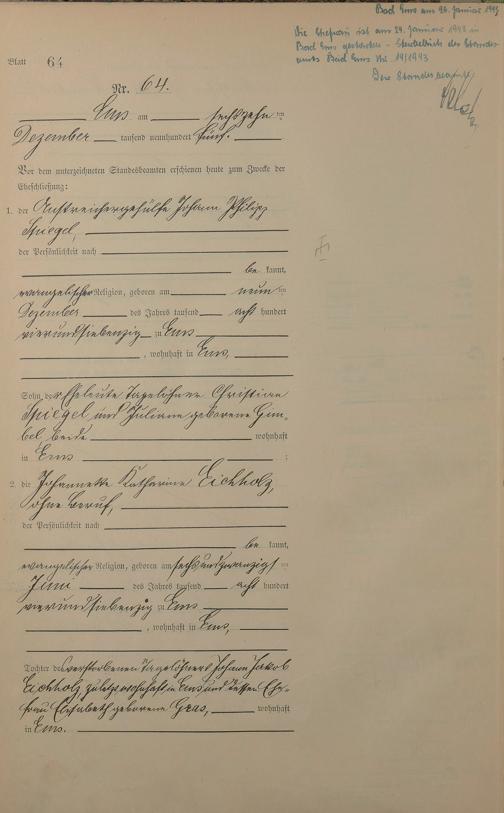 Bad Ems am 26. Januar 1943
Die Ehefrau ist am 24. Januar 1943 in
Bad Ems gestorben - Sterbebuch des Standes-
amts Bad Ems Nr. 14/1943
Der Standesbeamte
Blatt 64
Nr. 64.
Ems am sechszehnten
Dezember tausend neunhundert fünf.
Vor dem unterzeichneten Standesbeamten erschienen heute zum Zwecke der
Eheschließung:
1. der Anstreichergehülfe Johann Philipp
Spiegel,
der Persönlichkeit nach
be kannt,
evangelischer Religion, geboren am neunten
Dezember des Jahres tausend acht hundert
vierundsiebenzig zu Ems
, wohnhaft in Ems,
Sohn der Eheleute Tagelöhner Christian
Spiegel und Juliane geborene Gim-
bel, beide wohnhaft
in Ems ;
2. die Johannette Katharine Eichholz,
ohne Beruf,
der Persönlichkeit nach
be kannt,
evangelischer Religion, geboren am sechsundzwanzigsten
Juni des Jahres tausend acht hundert
vierundsiebenzig zu Ems
, wohnhaft in Ems,
Tochter des verstorbenen Tagelöhners Johann Jakob
Eichholz, zuletzt wohnhaft in Ems und dessen Ehe-
frau Elisabeth geborene Gras, wohnhaft
in Ems.